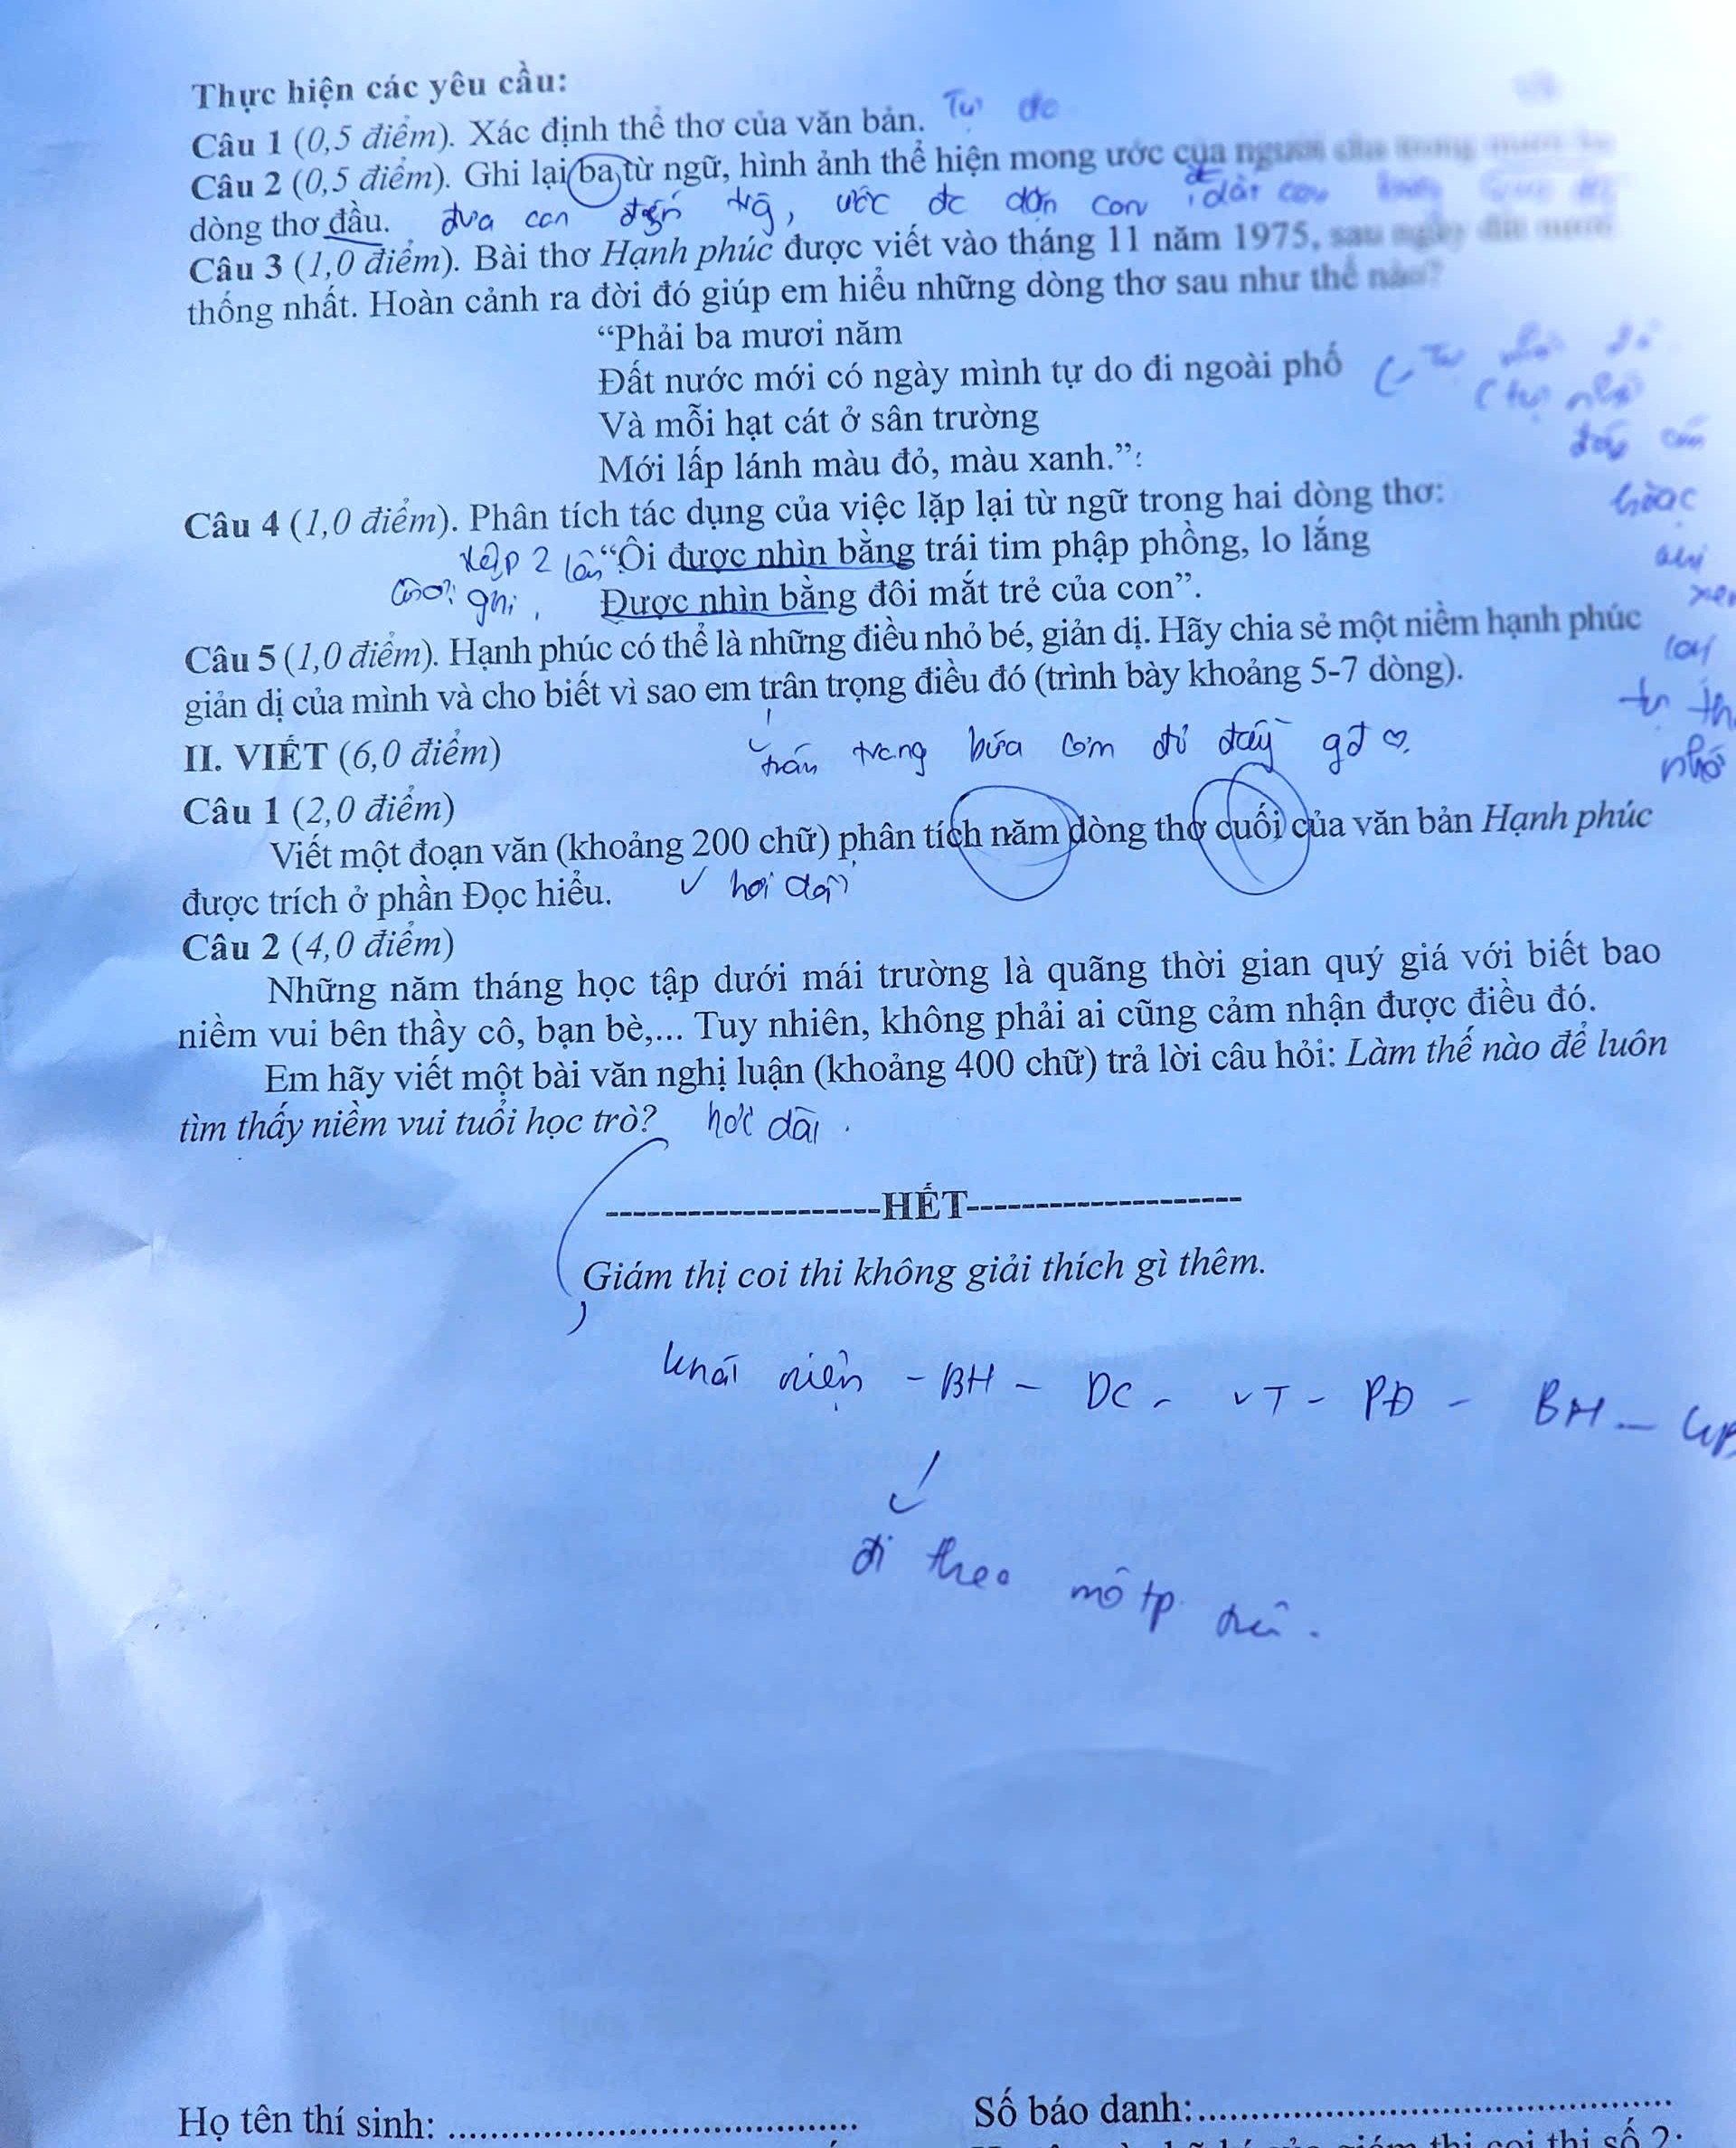 Thực hiện các yêu cầu:
Câu 1 (0,5 điểm). Xác định thể thơ của văn bản. Tự do
Câu 2 (0,5 điểm). Ghi lại ba từ ngữ, hình ảnh thể hiện mong ước của người cha trong
dòng thơ đầu. đưa con đến trg, ước đc đón con, dắt con
Câu 3 (1,0 điểm). Bài thơ Hạnh phúc được viết vào tháng 11 năm 1975, sau ngày đất nước
thống nhất. Hoàn cảnh ra đời đó giúp em hiểu những dòng thơ sau như thế nào?
“Phải ba mươi năm
Đất nước mới có ngày mình tự do đi ngoài phố
Và mỗi hạt cát ở sân trường
Mới lấp lánh màu đỏ, màu xanh.”:
Câu 4 (1,0 điểm). Phân tích tác dụng của việc lặp lại từ ngữ trong hai dòng thơ:
lặp 2 lần “Ôi được nhìn bằng trái tim phập phồng, lo lắng
ghi, Được nhìn bằng đôi mắt trẻ của con”.
Câu 5 (1,0 điểm). Hạnh phúc có thể là những điều nhỏ bé, giản dị. Hãy chia sẻ một niềm hạnh phúc
giản dị của mình và cho biết vì sao em trân trọng điều đó (trình bày khoảng 5-7 dòng).
II. VIẾT (6,0 điểm) trân trọng bữa cơm đủ đầy gđ ♡.
Câu 1 (2,0 điểm)
Viết một đoạn văn (khoảng 200 chữ) phân tích năm dòng thơ cuối của văn bản Hạnh phúc
được trích ở phần Đọc hiểu. hơi dài
Câu 2 (4,0 điểm)
Những năm tháng học tập dưới mái trường là quãng thời gian quý giá với biết bao
niềm vui bên thầy cô, bạn bè,... Tuy nhiên, không phải ai cũng cảm nhận được điều đó.
Em hãy viết một bài văn nghị luận (khoảng 400 chữ) trả lời câu hỏi: Làm thế nào để luôn
tìm thấy niềm vui tuổi học trò? hơi dài.
--------------------HẾT--------------------
Giám thị coi thi không giải thích gì thêm.
khái niệm - BH - DC - VT - PĐ - BH -
đi theo mô tp
Họ tên thí sinh: ........................................ Số báo danh:..............................................
coi thi số 2: